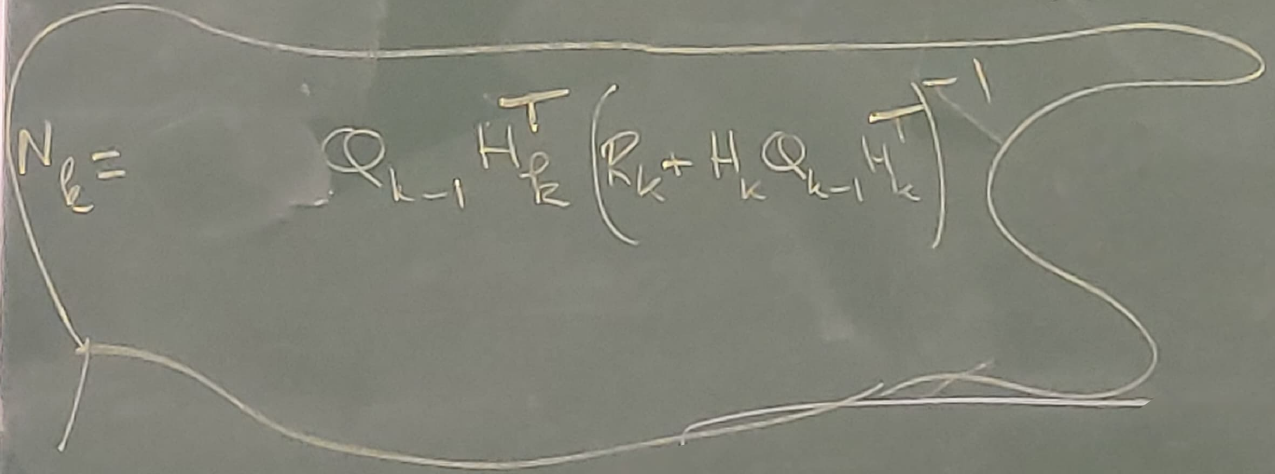 N_k = Q_{k-1} H_k^T (R_k + H_k Q_{k-1} H_k^T)^{-1}